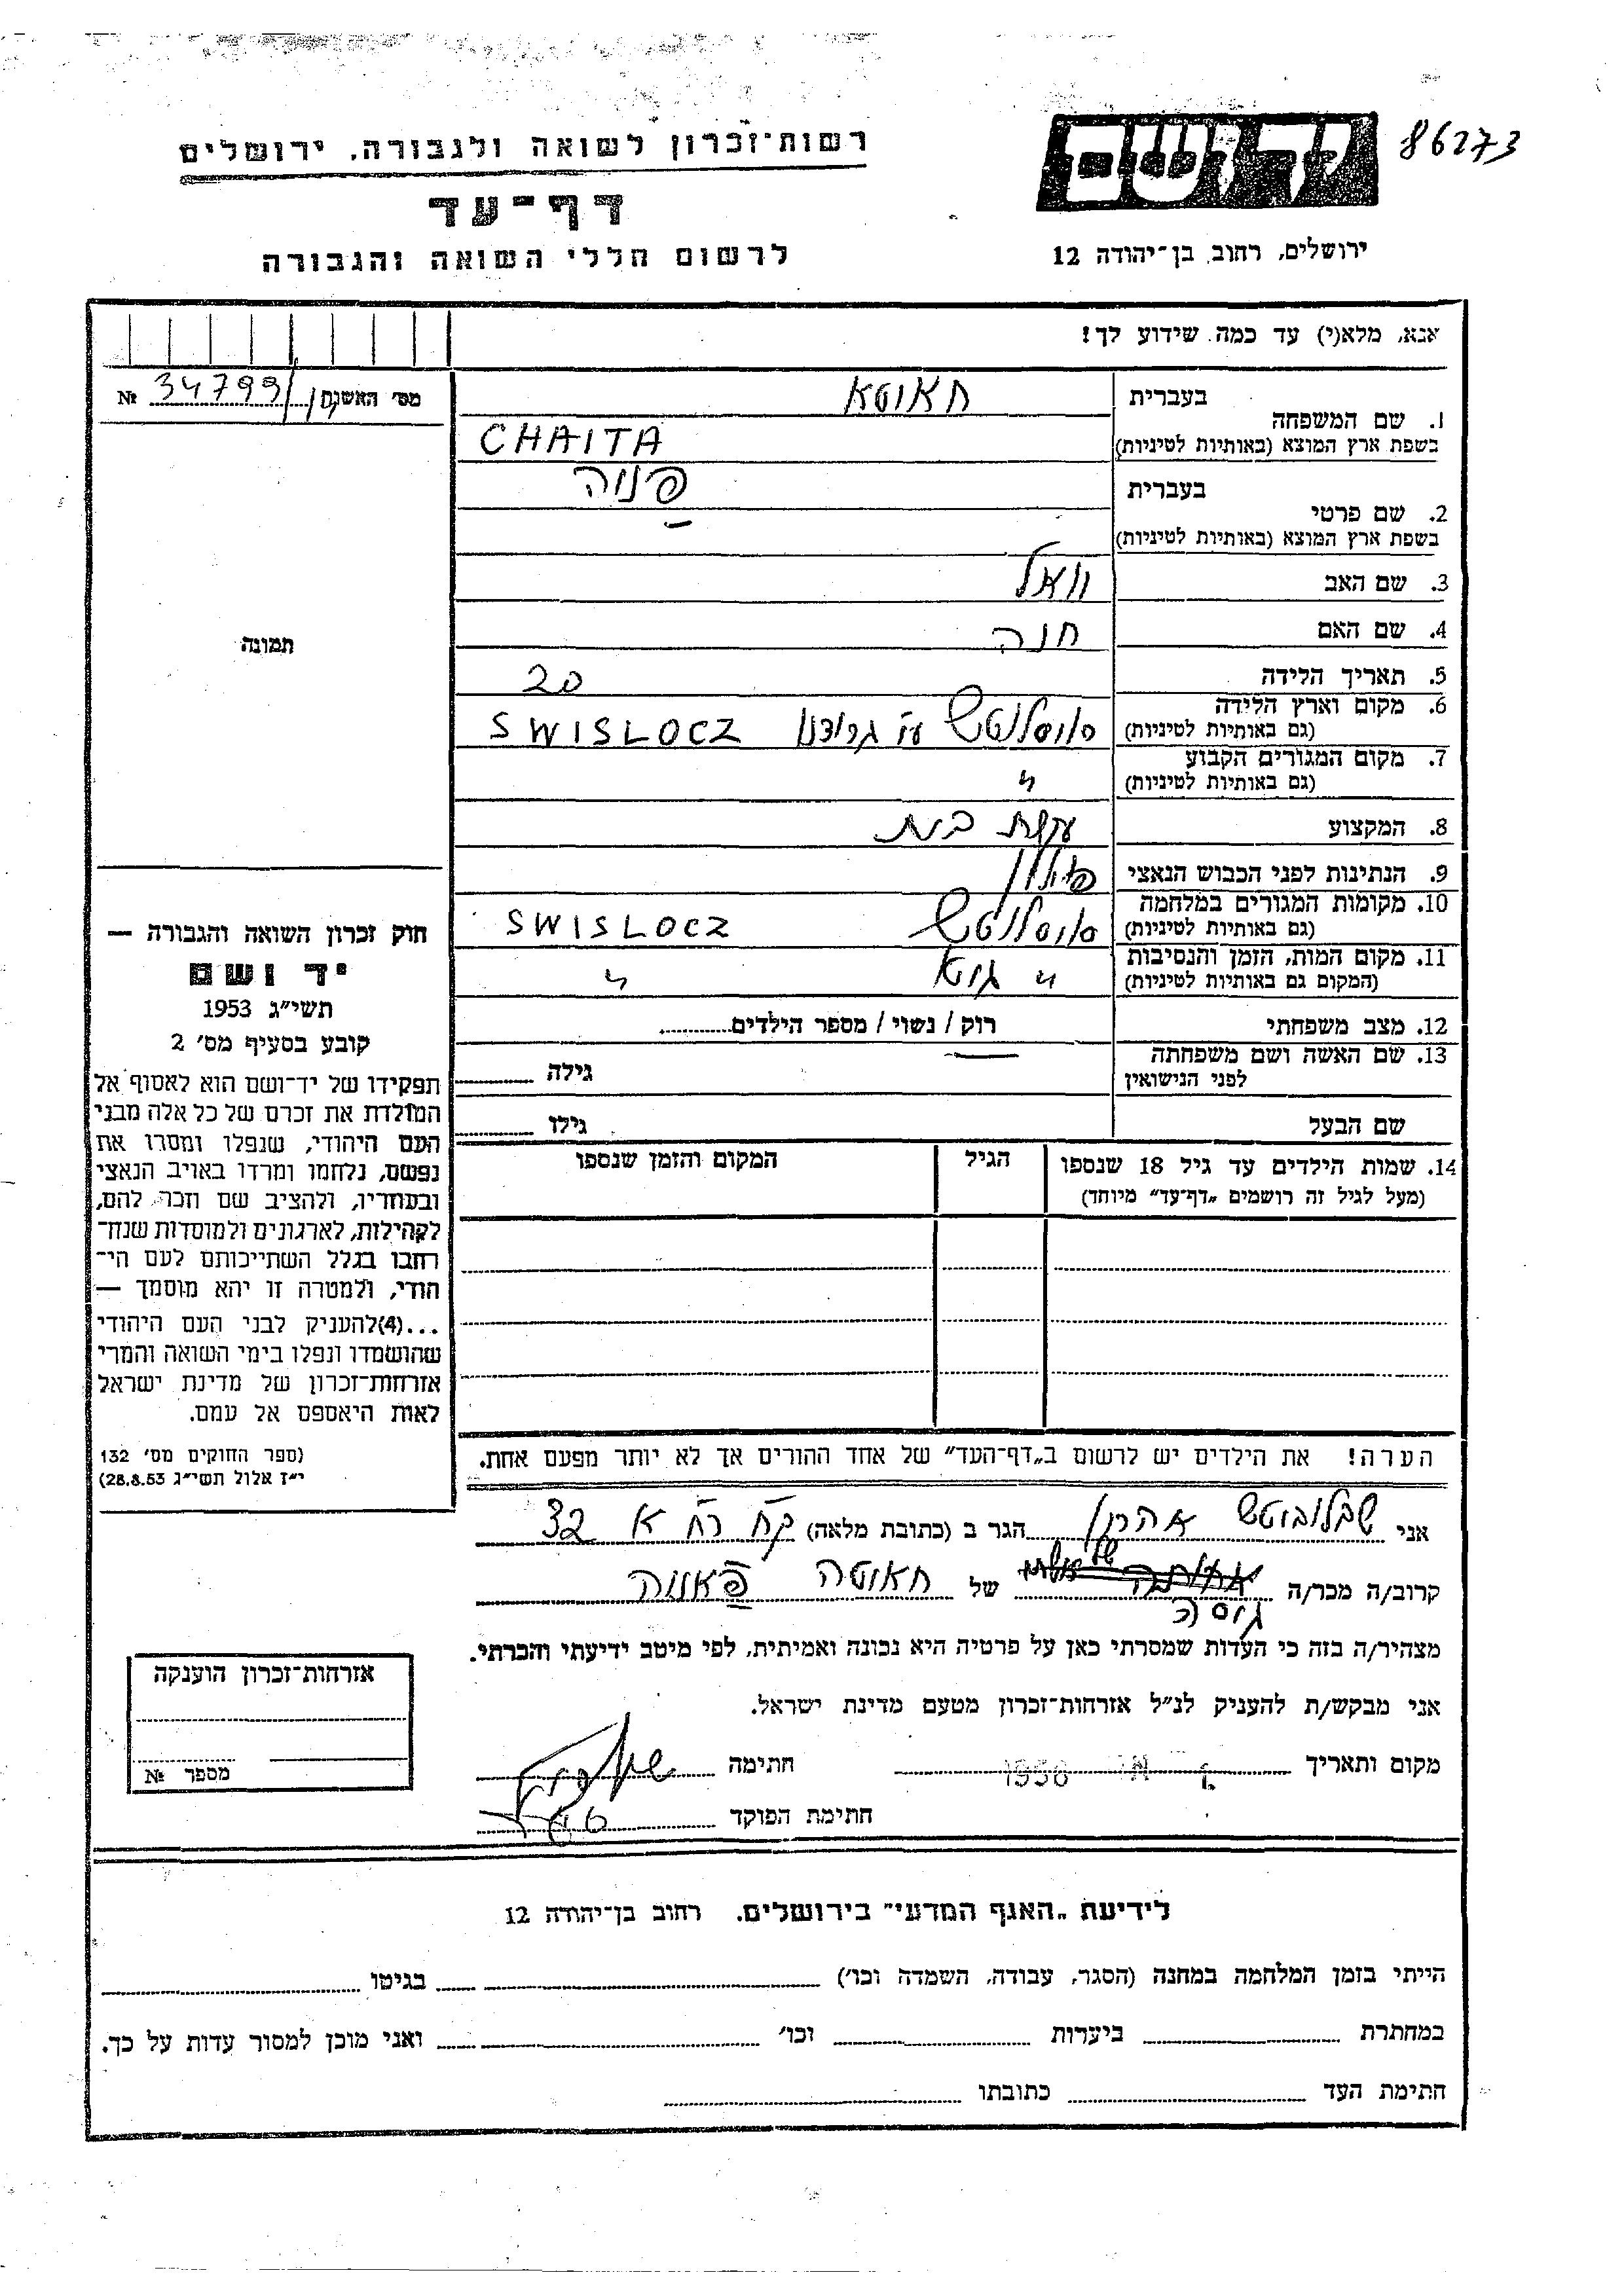 86273
רשות־זכרון לשואה ולגבורה. ירושלים
דף־עד
לרשום חללי השואה והגבורה
ירושלים, רחוב בן־יהודה 12
אנא, מלא(י) עד כמה שידוע לך!
מס׳ האשנה № 34799
1. שם המשפחה
בעברית חאוטא
בשפת ארץ המוצא (באותיות לטיניות) CHAITA
2. שם פרטי
בעברית פניה
בשפת ארץ המוצא (באותיות לטיניות)
3. שם האב
4. שם האם חנה
5. תאריך הלידה 20
6. מקום וארץ הלידה
(גם באותיות לטיניות) סויסלוטש ע״י גרודנו SWISLOCZ
7. מקום המגורים הקבוע
(גם באותיות לטיניות) "
8. המקצוע עקרת בית
9. הנתינות לפני הכבוש הנאצי פולין
10. מקומות המגורים במלחמה
(גם באותיות לטיניות) סויסלוטש SWISLOCZ
11. מקום המות, הזמן והנסיבות
(המקום גם באותיות לטיניות) " גיטא "
12. מצב משפחתי רוק / נשוי / מספר הילדים
13. שם האשה ושם משפחתה
לפני הנישואין גילה
שם הבעל גילו
14. שמות הילדים עד גיל 18 שנספו
(מעל לגיל זה רושמים „דף־עד״ מיוחד)
הגיל
המקום והזמן שנספו
תמונה
חוק זכרון השואה והגבורה —
יד ושם
תשי״ג 1953
קובע בסעיף מס׳ 2
תפקידו של יד־ושם הוא לאסוף אל
המולדת את זכרם של כל אלה מבני
העם היהודי, שנפלו ומסרו את
נפשם, נלחמו ומרדו באויב הנאצי
ובעוזריו, ולהציב שם וזכר להם,
לקהילות, לארגונים ולמוסדות שנח־
רבו בגלל השתייכותם לעם הי־
הודי, ולמטרה זו יהא מוסמך —
...(4)להעניק לבני העם היהודי
שהושמדו ונפלו בימי השואה והמרי
אזרחות־זכרון של מדינת ישראל
לאות היאספם אל עמם.
(ספר החוקים מס׳ 132
י״ז אלול תשי״ג 28.8.53)
הערה! את הילדים יש לרשום ב„דף־העד״ של אחד ההורים אך לא יותר מפעם אחת.
אני שבלוביטש אהרון הגר ב (כתובת מלאה) 32
קרוב/ה מכר/ה גיסה של חאוטה פאניה
מצהיר/ה בזה כי העדות שמסרתי כאן על פרטיה היא נכונה ואמיתית, לפי מיטב ידיעתי והכרתי.
אני מבקש/ת להעניק לנ״ל אזרחות־זכרון מטעם מדינת ישראל.
מקום ותאריך 1956 חתימה
חתימת הפוקד
אזרחות־זכרון הוענקה
מספר №
לידיעת „האגף המדעי״ בירושלים. רחוב בן־יהודה 12
הייתי בזמן המלחמה במחנה (הסגר, עבודה, השמדה וכו׳) בגיטו
במחתרת ביערות וכו׳ ואני מוכן למסור עדות על כך.
חתימת העד כתובתו